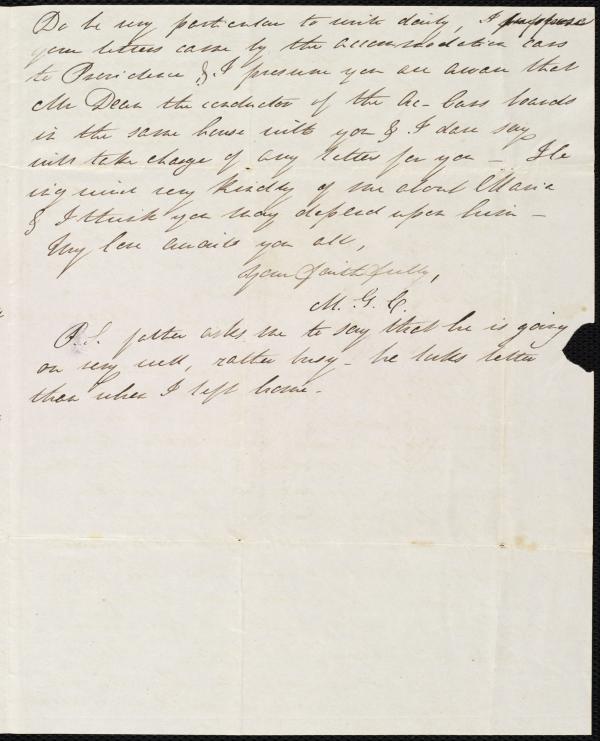 Do be very particular to write daily, I suppose
your letters came by the accommodation cars
to Providence & I presume you are aware that
Mr Dean the conductor of the Ac- Cars boards
in the same house with you & I dare say
will take charge of any letter for you - He
inquired very kindly of me about Maria
& I think you may depend upon him -
My love awaits you all,
Your faithfully,
M. G. C.
P.S. father asks me to say that he is going
on very well, rather busy - he looks better
than when I left home.